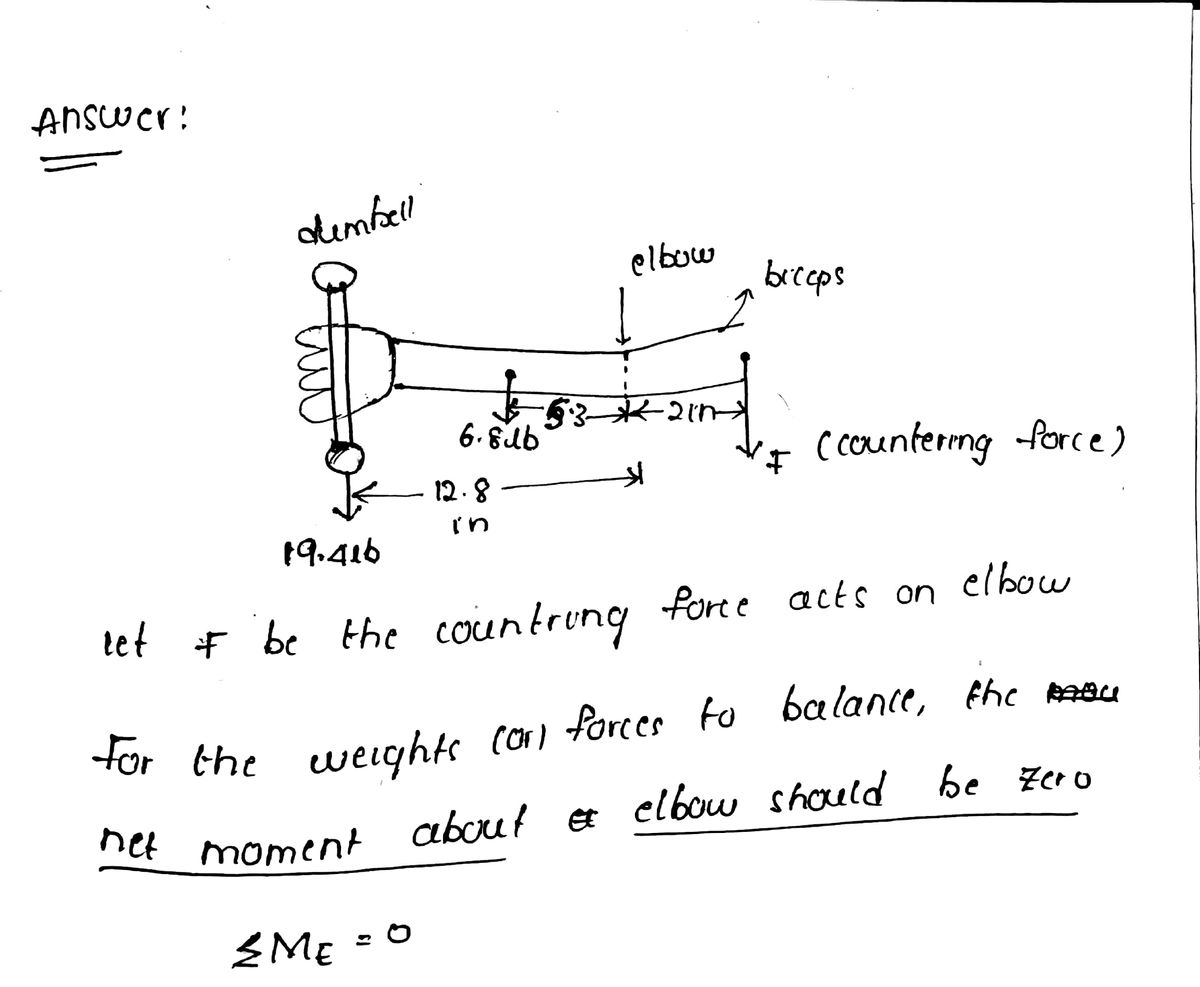 Answer:
dumbell
elbow
biceps
5.3
2in
6.8lb
F (countering force)
12.8
in
19.4lb
let F be the countrung force acts on elbow
For the weights (or) forces to balance, the
net moment about elbow should be zero
ΣME = 0